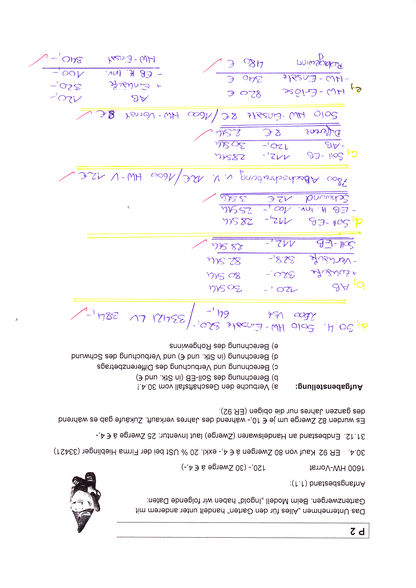 P 2
Das Unternehmen „Alles für den Garten“ handelt unter anderem mit
Gartenzwergen. Beim Modell „Ingold“ haben wir folgende Daten:
Anfangsbestand (1.1.):
1600 HW-Vorrat 120,- (30 Zwerge á € 4,-)
30.4. ER 92 Kauf von 80 Zwergen á € 4,-. exkl. 20 % USt bei der Firma Hieblinger (33421)
31.12. Endbestand an Handelswaren (Zwerge) laut Inventur: 25 Zwerge á € 4,-
Es wurden 82 Zwerge um je € 10,- während des Jahres verkauft. Zukäufe gab es während
des ganzen Jahres nur die obigen (ER 92).
Aufgabenstellung:
a) Verbuche den Geschäftsfall vom 30.4.!
b) Berechnung der Soll-EB (in Stk. und €)
c) Berechnung und Verbuchung des Differenzbetrages
d) Berechnung (in Stk. und €) und Verbuchung des Schwund
e) Berechnung des Rohgewinns
a) 30.4. 5010 HW-Einsatz 320,- / 33421 LV 384,-
VSt 64,-
b) AB 120,- 30 Stk
+Einkäufe 320,- 80 Stk
-Verkäufe 328,- 82 Stk
Soll-EB 112,- 28 Stk
d) Soll-EB 112,- 28 Stk
-EB lt. Inv. -100,- 25 Stk
Schwund 12 € 3 Stk
7800 Abschreibung v. V. 12 € / 1600 HW-V 12 €
c) Soll-EB 112,- 28 Stk
-AB -120,- 30 Stk
Differenz 8 € 2 Stk
5010 HW-Einsatz 8 € / 1600 HW-Vorrat 8 €
e) HW-Erlöse 820 €
-HW-Einsatz 340 €
Rohgewinn 480 €
AB 120,-
+Einkäufe 320,-
-EB lt. Inv. 100,-
HW-Einsatz 340,-